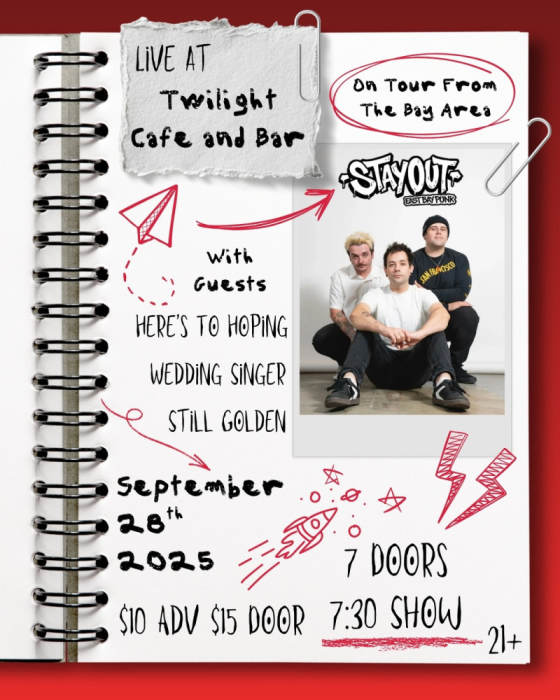 LIVE AT
Twilight
Cafe and Bar
On Tour From
The Bay Area
STAYOUT
EAST BAY PUNK
SAN FRANCISCO
With
Guests
HERE'S TO HOPING
WEDDING SINGER
STILL GOLDEN
September
28th
2025
7 DOORS
$10 ADV $15 DOOR
7:30 SHOW
21+